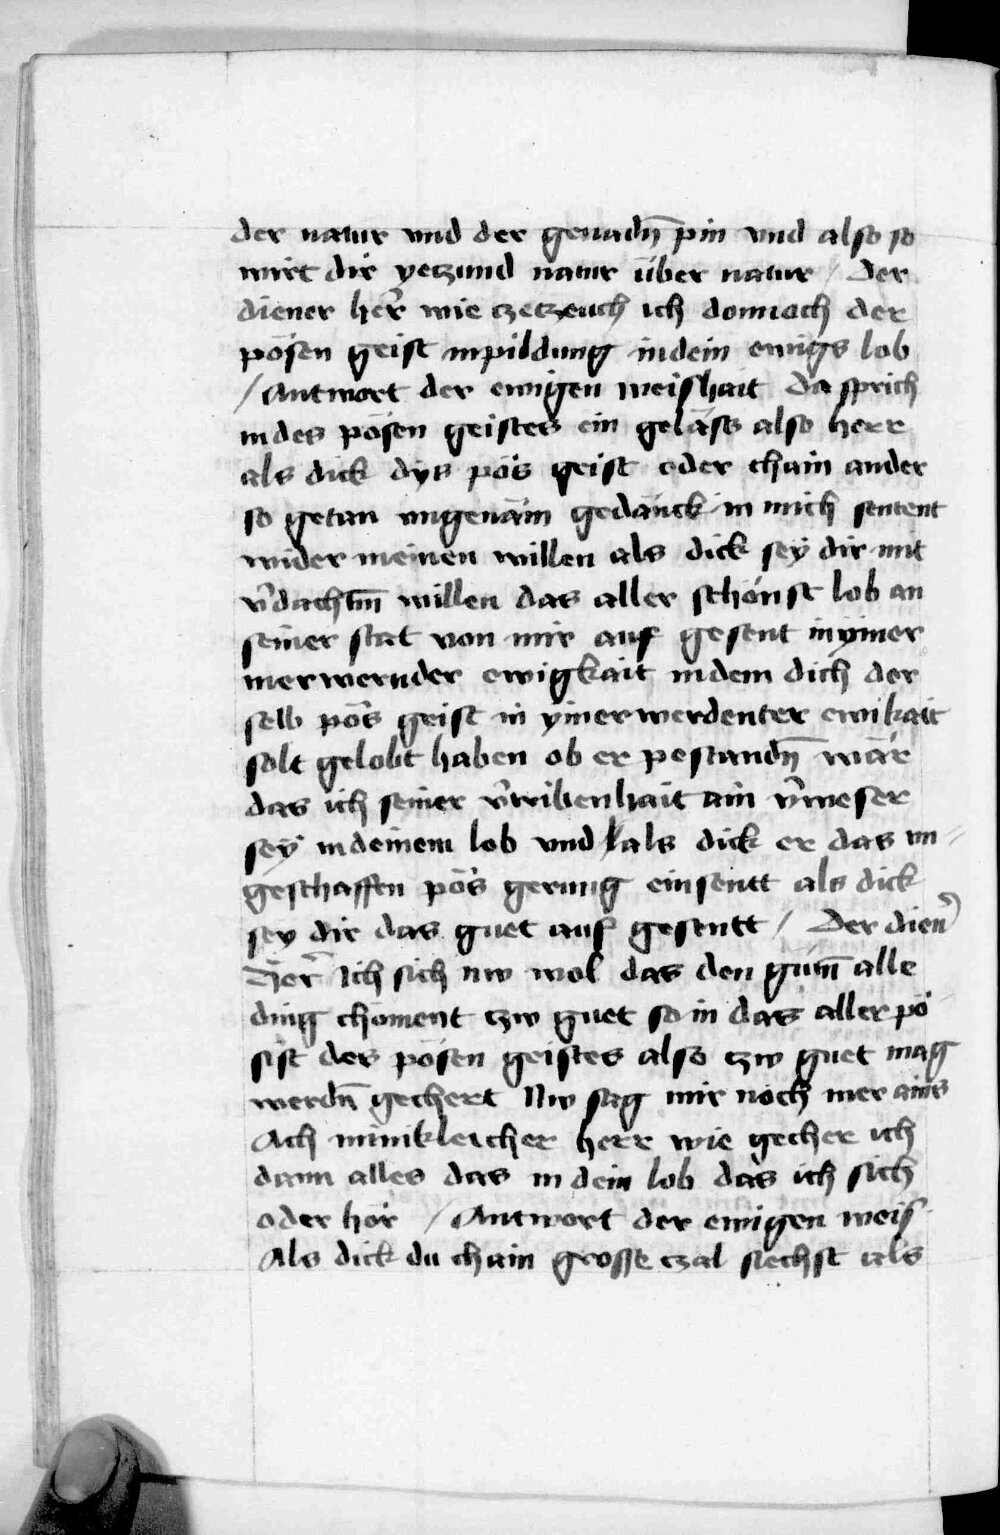 der natur vnd der genadn̄ pin vnd also so
wirt dir yetzund natur über natur / Der
diener her̄ wie tzetzeuch ich dornoch der
pösen geist inpildung in dein ewigs lob
/ Antwort der ewigen weishait Da sprich
in des pösen geistes ein geläst also herr
als dick dÿs pös geist oder chain ander
so getan vngenäm gedänck in mich sentent
wider meinen willen als dick seÿ dir mit
v̄dachtm̄ willen das aller schönst lob an
seiner stat von mir auf gesent in ÿmer
mer wernder ewigkait in dem dich der
selb pös geist in ÿmer werdenter ewikait
solt gelobt haben ob er pestandn̄ wär
das ich seiner v̄wibenhait ain v̄weser
seÿ in deinem lob vnd als dick er das vn=
geschaffen pös gerung einsentt als dick
sey dir das guet auf gesentt / Der dien̄
Her̄ Ich sich nw wol das den gutn̄ alle
ding chöment tzw guet so in das aller pö
sist des pösen geistes also tzw guet mag
werdn̄ gechert Nw sag mir noch mer ains
Ach minikleicher herr wie gecher ich
dann alles das in dein lob das ich sich
oder hör / Antwort der ewigen weis
Als dick du chain grosse tzal siechst als